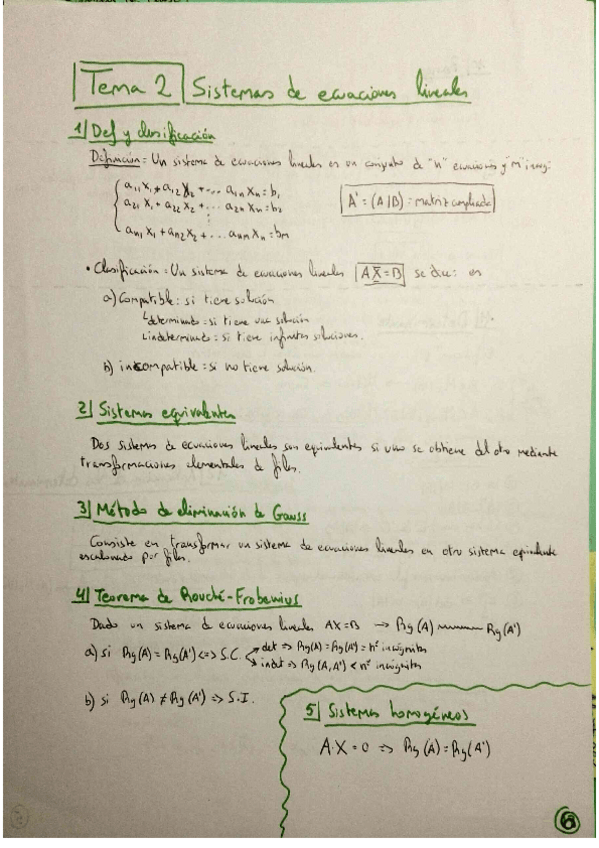 Tema 2 Sistemas de ecuaciones lineales
1| Def y clasificación
Definición: Un sistema de ecuaciones lineales es un conjunto de "n" ecuaciones y "m" incóg:
a₁₁x₁ + a₁₂x₂ + ... a₁ₙxₙ = b₁
a₂₁x₁ + a₂₂x₂ + ... a₂ₙxₙ = b₂
⋮
aₙ₁x₁ + aₙ₂x₂ + ... aₙₘxₙ = bₘ
A' = (A|B) = matriz ampliada
• Clasificación: Un sistema de ecuaciones lineales AX=B se dice: es
a) Compatible: si tiene solución
↳ determinado: si tiene una solución
↳ indeterminado: si tiene infinitas soluciones.
b) incompatible: si no tiene solución.
2| Sistemas equivalentes
Dos sistemas de ecuaciones lineales son equivalentes si uno se obtiene del otro mediante
transformaciones elementales de filas.
3| Método de eliminación de Gauss
Consiste en transformar un sistema de ecuaciones lineales en otro sistema equivalente
escalonado por filas.
4| Teorema de Rouché-Frobenius
Dado un sistema de ecuaciones lineales AX=B → Rg(A) Rg(A')
a) si Rg(A) = Rg(A') <=> S.C.
det => Rg(A) = Rg(A') = nº incógnitas
indet => Rg(A,A') < nº incógnitas
b) si Rg(A) ≠ Rg(A') => S.I.
5| Sistemas homogéneos
A·X = 0 => Rg(A) = Rg(A')